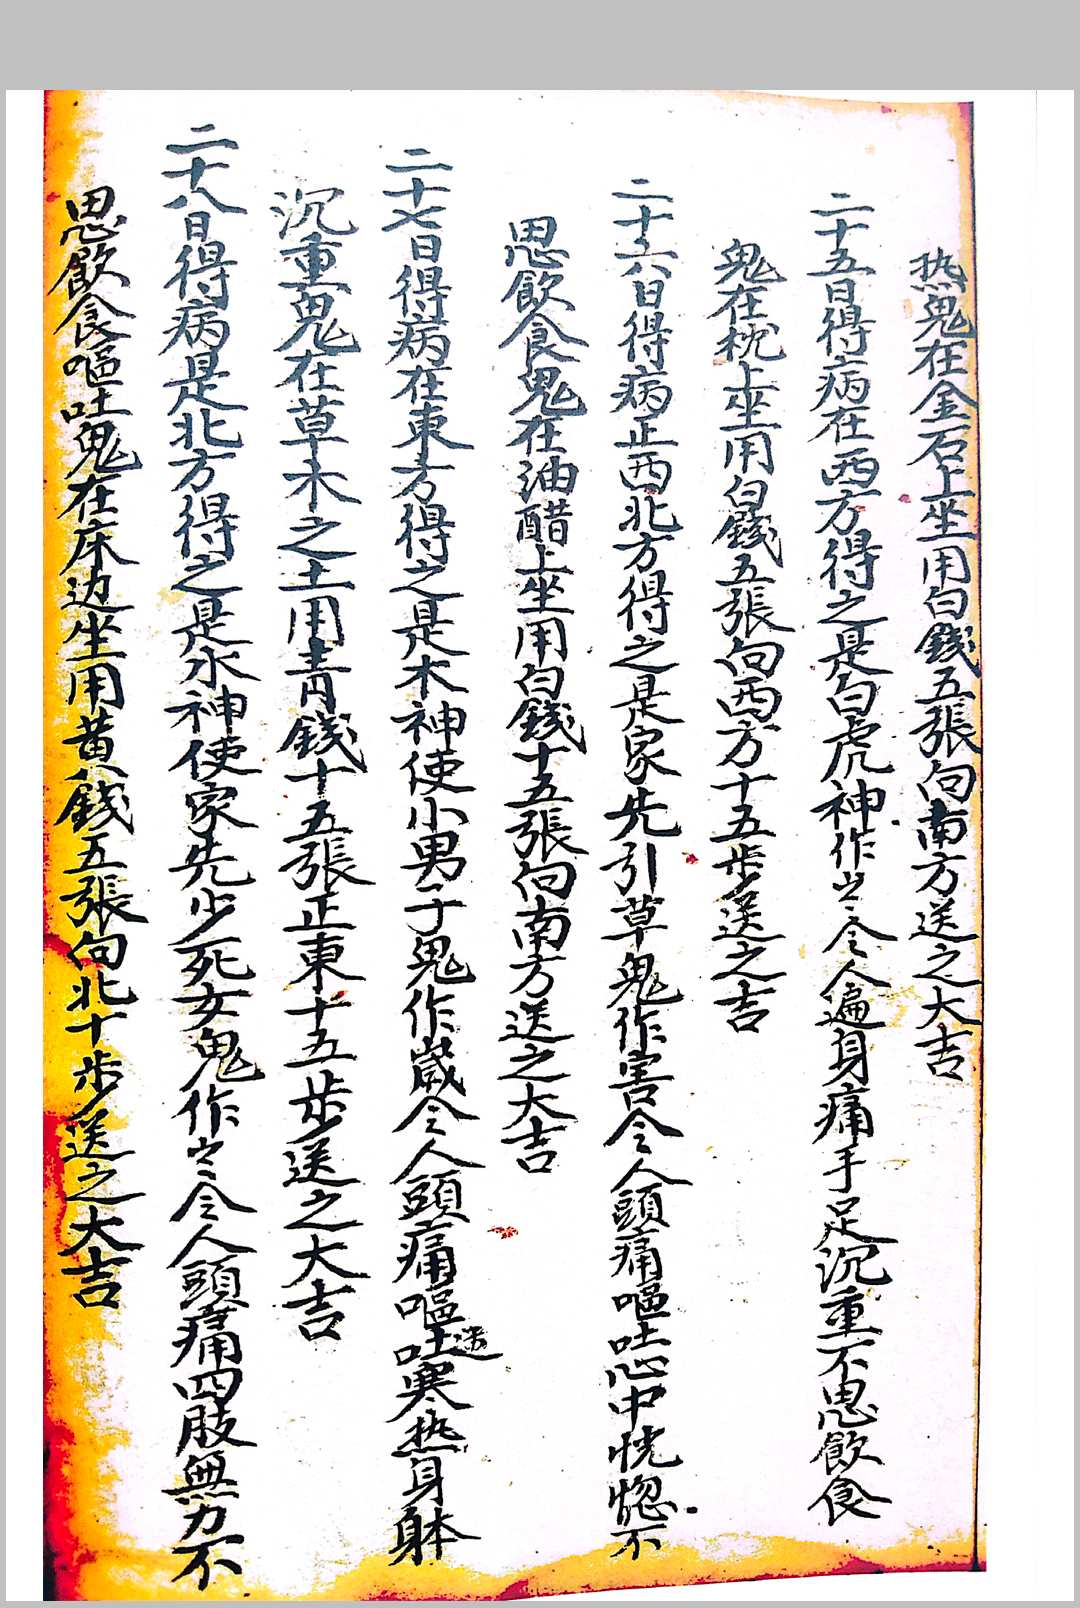 热鬼在金石上坐用白錢五張向南方送之大吉
二十五日得病在西方得之是白虎神作令人遍身痛手足沉重不思飲食
鬼在枕上坐用白錢五張向西方十五步送之吉
二十六日得病正西北方得之是家先引草鬼作害令人頭痛嘔吐心中恍惚不
思飲食鬼在油醋上坐用白錢十五張向南方送之大吉
二十七日得病在東方得之是木神使小男子鬼作歲令人頭痛嘔吐寒热身躰
沉重鬼在草木之土用青錢十五張正東十五步送之大吉
二十八日得病是北方得之是水神使家先少死女鬼作令人頭痛四肢無力不
思飲食嘔吐鬼在床边坐用黄錢五張向北十步送之大吉